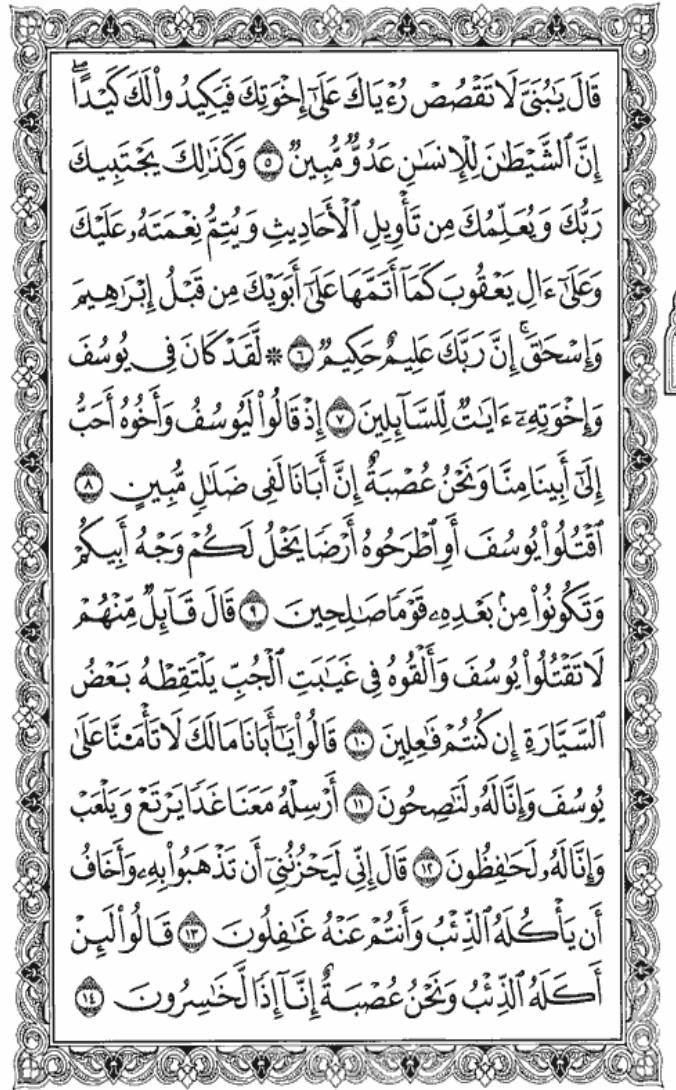 قَالَ يَٰبُنَيَّ لَا تَقۡصُصۡ رُءۡيَاكَ عَلَىٰٓ إِخۡوَتِكَ فَيَكِيدُواْ لَكَ كَيۡدًاۖ
إِنَّ ٱلشَّيۡطَٰنَ لِلۡإِنسَٰنِ عَدُوّٞ مُّبِينٞ ٥ وَكَذَٰلِكَ يَجۡتَبِيكَ
رَبُّكَ وَيُعَلِّمُكَ مِن تَأۡوِيلِ ٱلۡأَحَادِيثِ وَيُتِمُّ نِعۡمَتَهُۥ عَلَيۡكَ
وَعَلَىٰٓ ءَالِ يَعۡقُوبَ كَمَآ أَتَمَّهَا عَلَىٰٓ أَبَوَيۡكَ مِن قَبۡلُ إِبۡرَٰهِيمَ
وَإِسۡحَٰقَۚ إِنَّ رَبَّكَ عَلِيمٌ حَكِيمٞ ٦ ۞ لَّقَدۡ كَانَ فِي يُوسُفَ
وَإِخۡوَتِهِۦٓ ءَايَٰتٞ لِّلسَّآئِلِينَ ٧ إِذۡ قَالُواْ لَيُوسُفُ وَأَخُوهُ أَحَبُّ
إِلَىٰٓ أَبِينَا مِنَّا وَنَحۡنُ عُصۡبَةٌ إِنَّ أَبَانَا لَفِي ضَلَٰلٖ مُّبِينٍ ٨
ٱقۡتُلُواْ يُوسُفَ أَوِ ٱطۡرَحُوهُ أَرۡضٗا يَخۡلُ لَكُمۡ وَجۡهُ أَبِيكُمۡ
وَتَكُونُواْ مِنۢ بَعۡدِهِۦ قَوۡمٗا صَٰلِحِينَ ٩ قَالَ قَآئِلٞ مِّنۡهُمۡ
لَا تَقۡتُلُواْ يُوسُفَ وَأَلۡقُوهُ فِي غَيَٰبَتِ ٱلۡجُبِّ يَلۡتَقِطۡهُ بَعۡضُ
ٱلسَّيَّارَةِ إِن كُنتُمۡ فَٰعِلِينَ ١٠ قَالُواْ يَٰٓأَبَانَا مَا لَكَ لَا تَأۡمَ۬نَّا عَلَىٰ
يُوسُفَ وَإِنَّا لَهُۥ لَنَٰصِحُونَ ١١ أَرۡسِلۡهُ مَعَنَا غَدٗا يَرۡتَعۡ وَيَلۡعَبۡ
وَإِنَّا لَهُۥ لَحَٰفِظُونَ ١٢ قَالَ إِنِّي لَيَحۡزُنُنِيٓ أَن تَذۡهَبُواْ بِهِۦ وَأَخَافُ
أَن يَأۡكُلَهُ ٱلذِّئۡبُ وَأَنتُمۡ عَنۡهُ غَٰفِلُونَ ١٣ قَالُواْ لَئِنۡ
أَكَلَهُ ٱلذِّئۡبُ وَنَحۡنُ عُصۡبَةٌ إِنَّآ إِذٗا لَّخَٰسِرُونَ ١٤